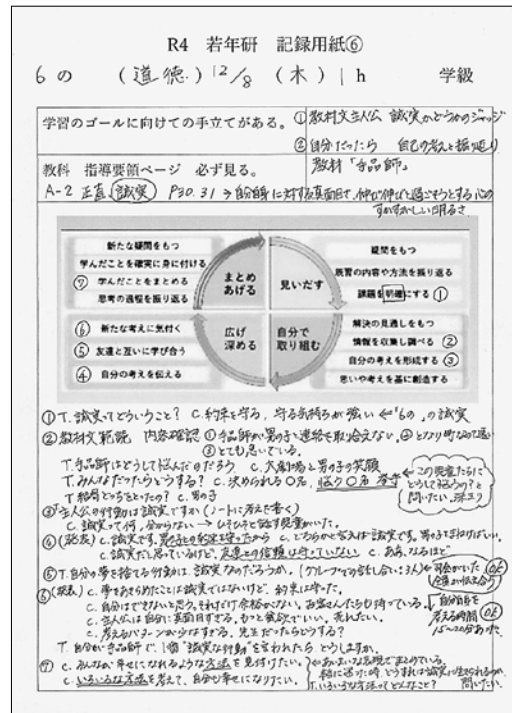 R4 若年研 記録用紙⑥
6の (道徳) 12/8 (木) 1h 学級
学習のゴールに向けての手立てがある。
①教材文主人公 誠実かどうかのジャッジ
②自分だったら 自己の考えと振り返り
教材「手品師」
教科 指導要領ページ 必ず見る。
A-2 正直、誠実 P30.31 → 自分自身に対する真面目さ、伸び伸びと過ごそうとする心の
すがすがしい明るさ
新たな疑問をもつ
学んだことを確実に身に付ける
⑦ 学んだことをまとめる
思考の過程を振り返る
まとめあげる
見いだす
疑問をもつ
既習の内容や方法を振り返る
課題を明確にする ①
⑥ 新たな考えに気付く
⑤ 友達と互いに学び合う
④ 自分の考えを伝える
広げ深める
自分で取り組む
解決の見通しをもつ
情報を収集し調べる ②
自分の考えを形成する ③
思いや考えを基に創造する
①T. 誠実ってどういうこと? C. 約束を守る、守る気持ちが強い ←"6の"の誠実
②教材文範読 内容確認 ①手品師が男の子に連絡を取り合えない、②となり町なので遠い
③とても急いでいる。
T. 手品師はどうして悩んだのだろう C. 大劇場と男の子の笑顔
T. みんなだったらどうする? C. 決められる〇名、悩む〇名 挙手
この児童たちにどうして悩むの?と問いたい。深まり
T 結局どっちをとったの? C. 男の子
③「主人公の行動は誠実ですか(ノートに考えを書く)
C. 誠実って何、分からない → ひそひそと話す児童がいた。
④(発表) C. 誠実です。男の子との約束を守ったから C. どちらかと言えば誠実です。男の子を
C. 誠実だと思っているけど、友達との信頼は守っていない C. ああ、なるほど
⑤T. 自分の夢を捨てる行動は、誠実なのだろうか。(グループでの話し合い:3人)
⑥(発表) C. 夢をあきらめたことは誠実ではないけど、約束は守った。
C. 自分はできないと思う。それだけ余裕がない。お客さんたちも待っている。
C. 主人公は自分に真面目すぎる。もっと貪欲でいい。売れたい。
C. 考えるパターンが少なすぎる。先生だったらどうする?
自分自身を考える時間 OK
15〜20分あった。
T. 自分が手品師で、1個"誠実な行動"を言われたら、どうしますか。
⑦ C. みんなが幸せになれるような方法を見付けたい。
C. いろいろな方法を考えて、自分も幸せになりたい。
あいまいな表現でまとめている。
T. いろいろな方法ってどんなこと? 問いたい。